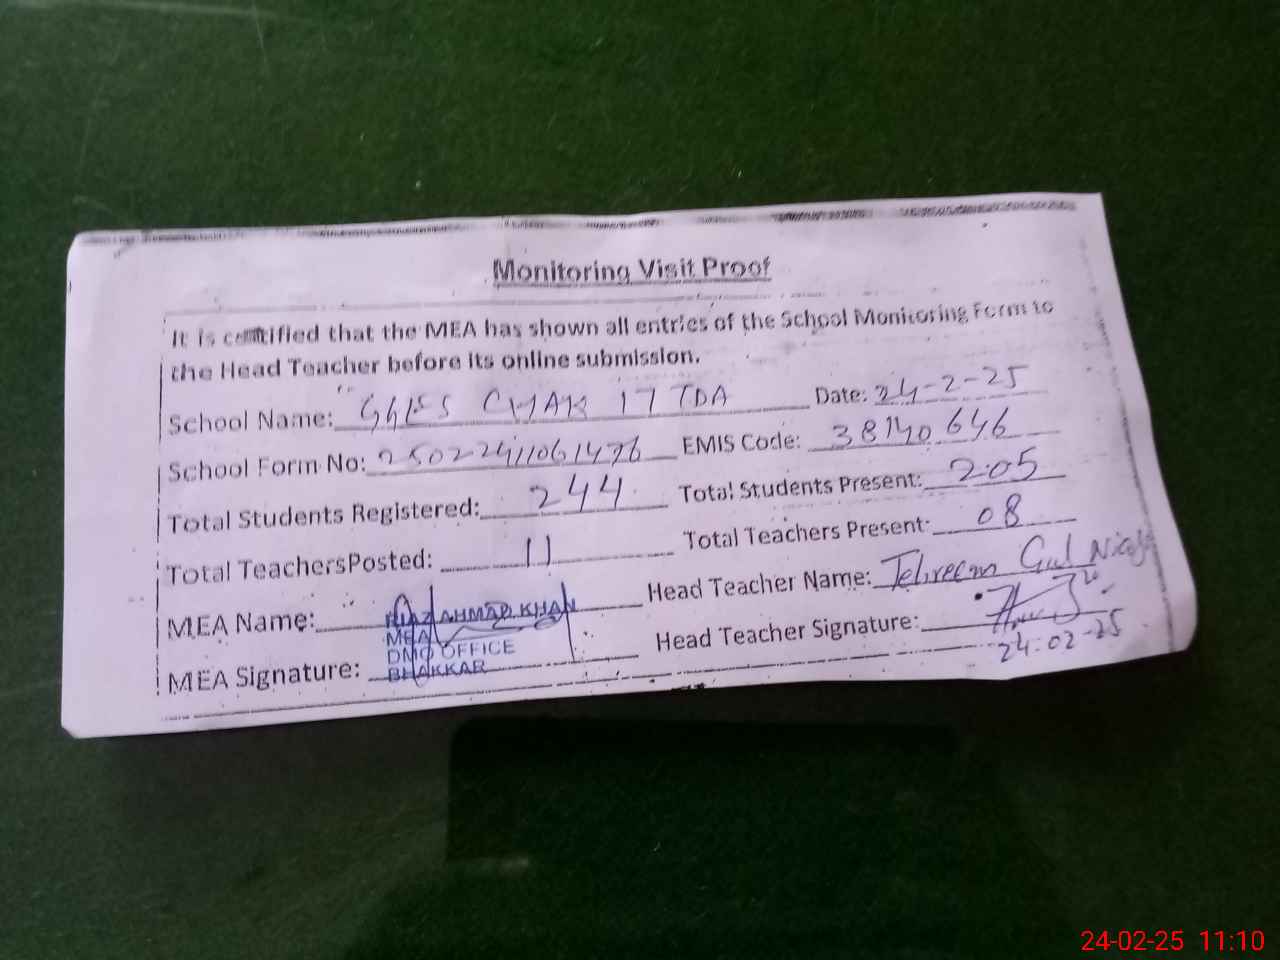 Monitoring Visit Proof
It is certified that the MEA has shown all entries of the School Monitoring Form to
the Head Teacher before its online submission.
School Name: GGES CHAK 17 TDA Date: 24-2-25
School Form No: 25022411061476 EMIS Code: 38140646
Total Students Registered: 244 Total Students Present: 205
Total TeachersPosted: 11 Total Teachers Present: 08
MEA Name: RIAZ AHMAD KHAN Head Teacher Name: Tehreem Gul
MEA
DMO OFFICE
MEA Signature: BHAKKAR Head Teacher Signature:
24-02-25
24-02-25 11:10